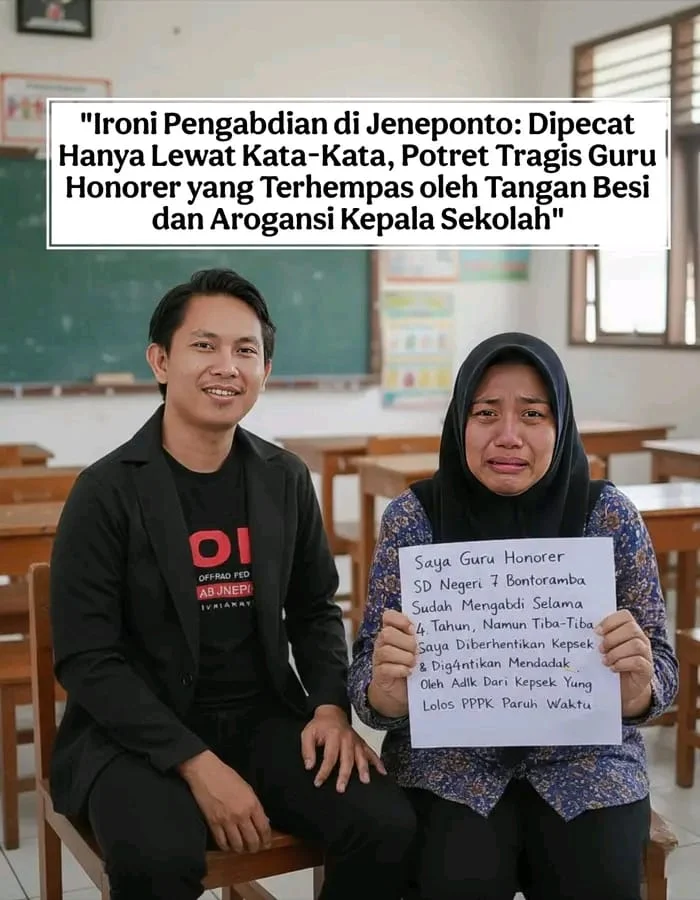 "Ironi Pengabdian di Jeneponto: Dipecat
Hanya Lewat Kata-Kata, Potret Tragis Guru
Honorer yang Terhempas oleh Tangan Besi
dan Arogansi Kepala Sekolah"
OFF-RAD FED
AB JNEP
Saya Guru Honorer
SD Negeri 7 Bontoramba
Sudah Mengabdi Selama
4. Tahun, Namun Tiba-Tiba
Saya Diberhentikan Kepsek
& Dig4ntikan Mendadak
Oleh Adik Dari Kepsek Yung
Lolos PPPK Paruh Waktu